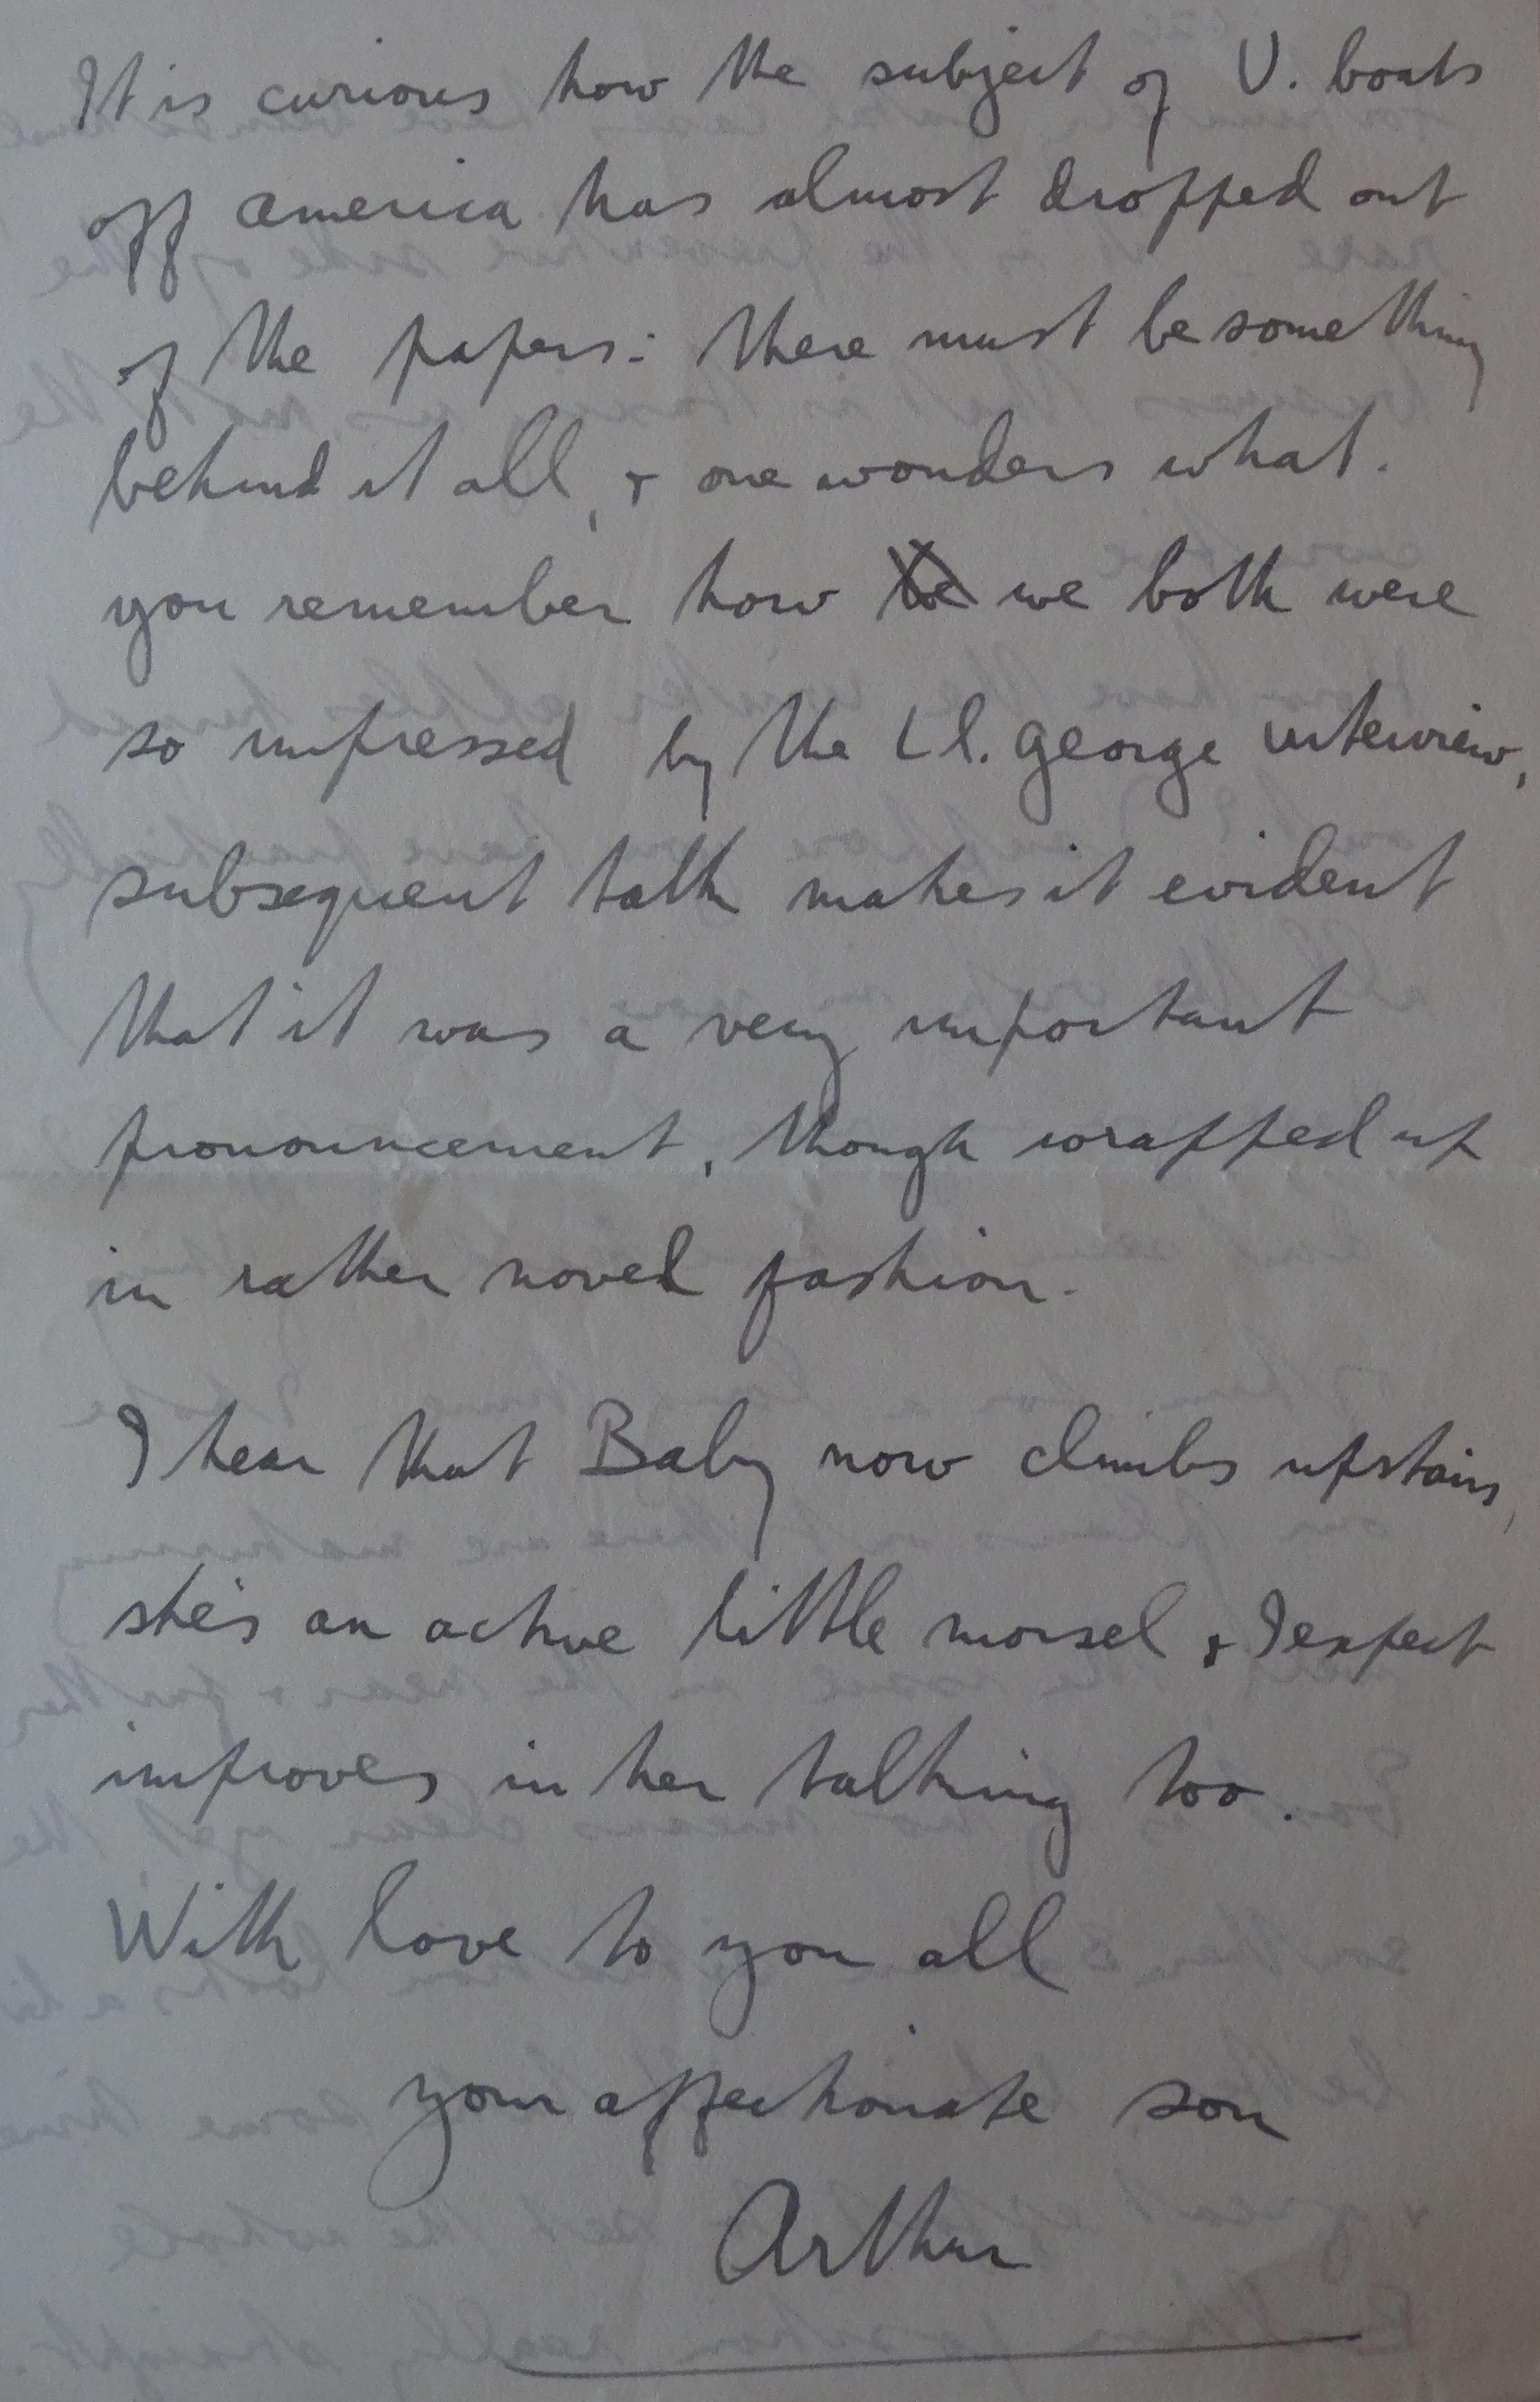 It is curious how the subject of U. boats
off America has almost dropped out
of the papers: there must be something
behind it all, & one wonders what.
you remember how we both were
so impressed by the Ll. George interview,
subsequent talk makes it evident
that it was a very important
pronouncement, though wrapped up
in rather novel fashion.
I hear that Baby now climbs upstairs,
she's an active little morsel & I expect
improves in her talking too.
With love to you all
your affectionate son
Arthur